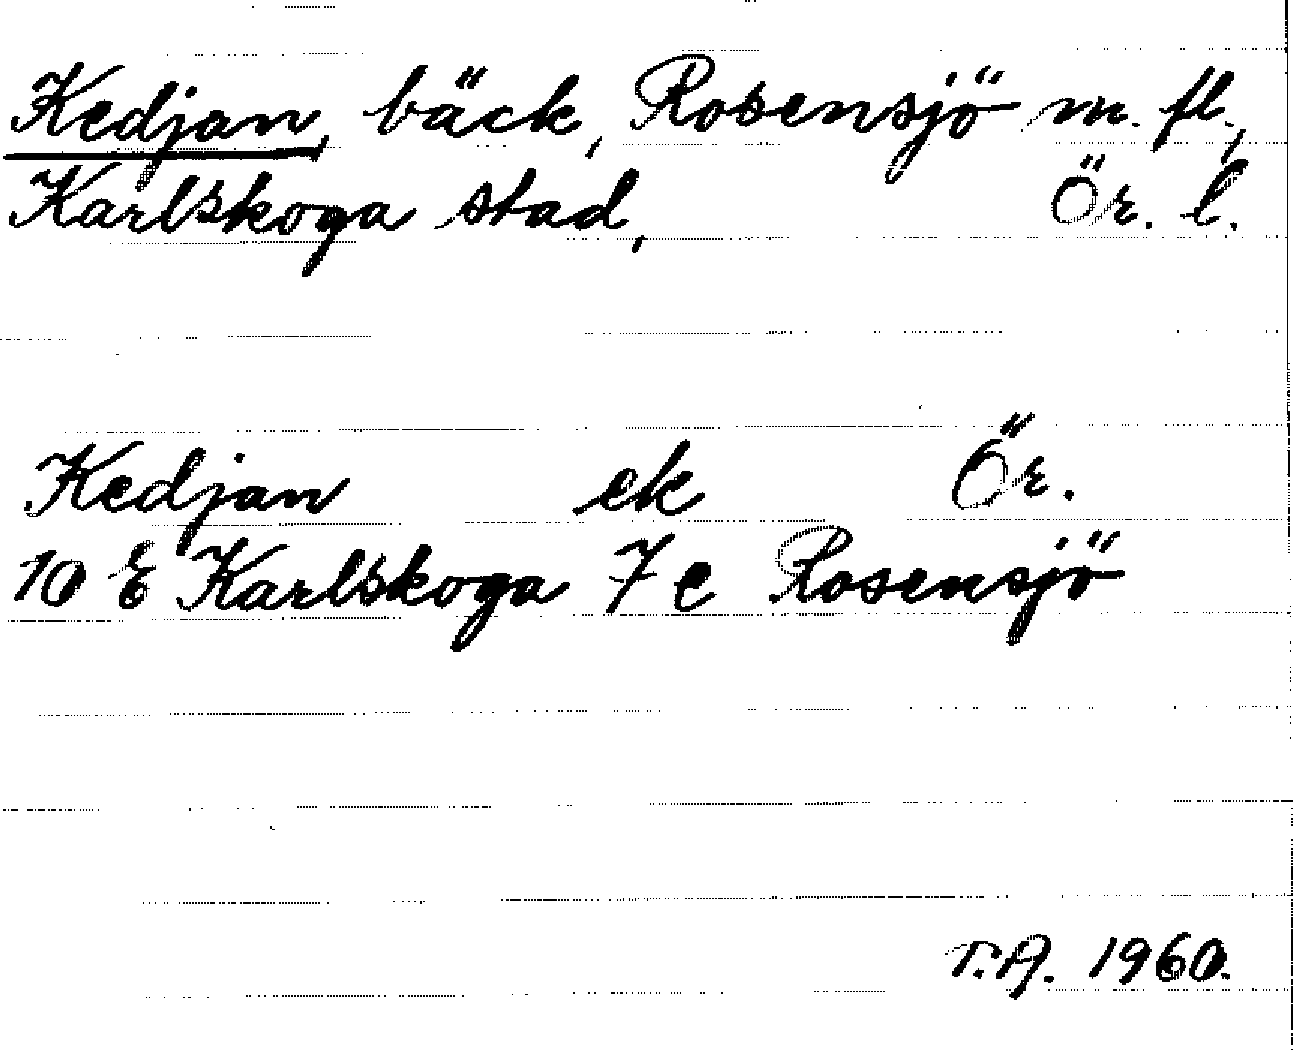 Kedjan, bäck, Rosensjö m. fl.,
Karlskoga stad, Ör. l.
Kedjan ek Ör.
10 E Karlskoga 7 c Rosensjö
T.A. 1960.